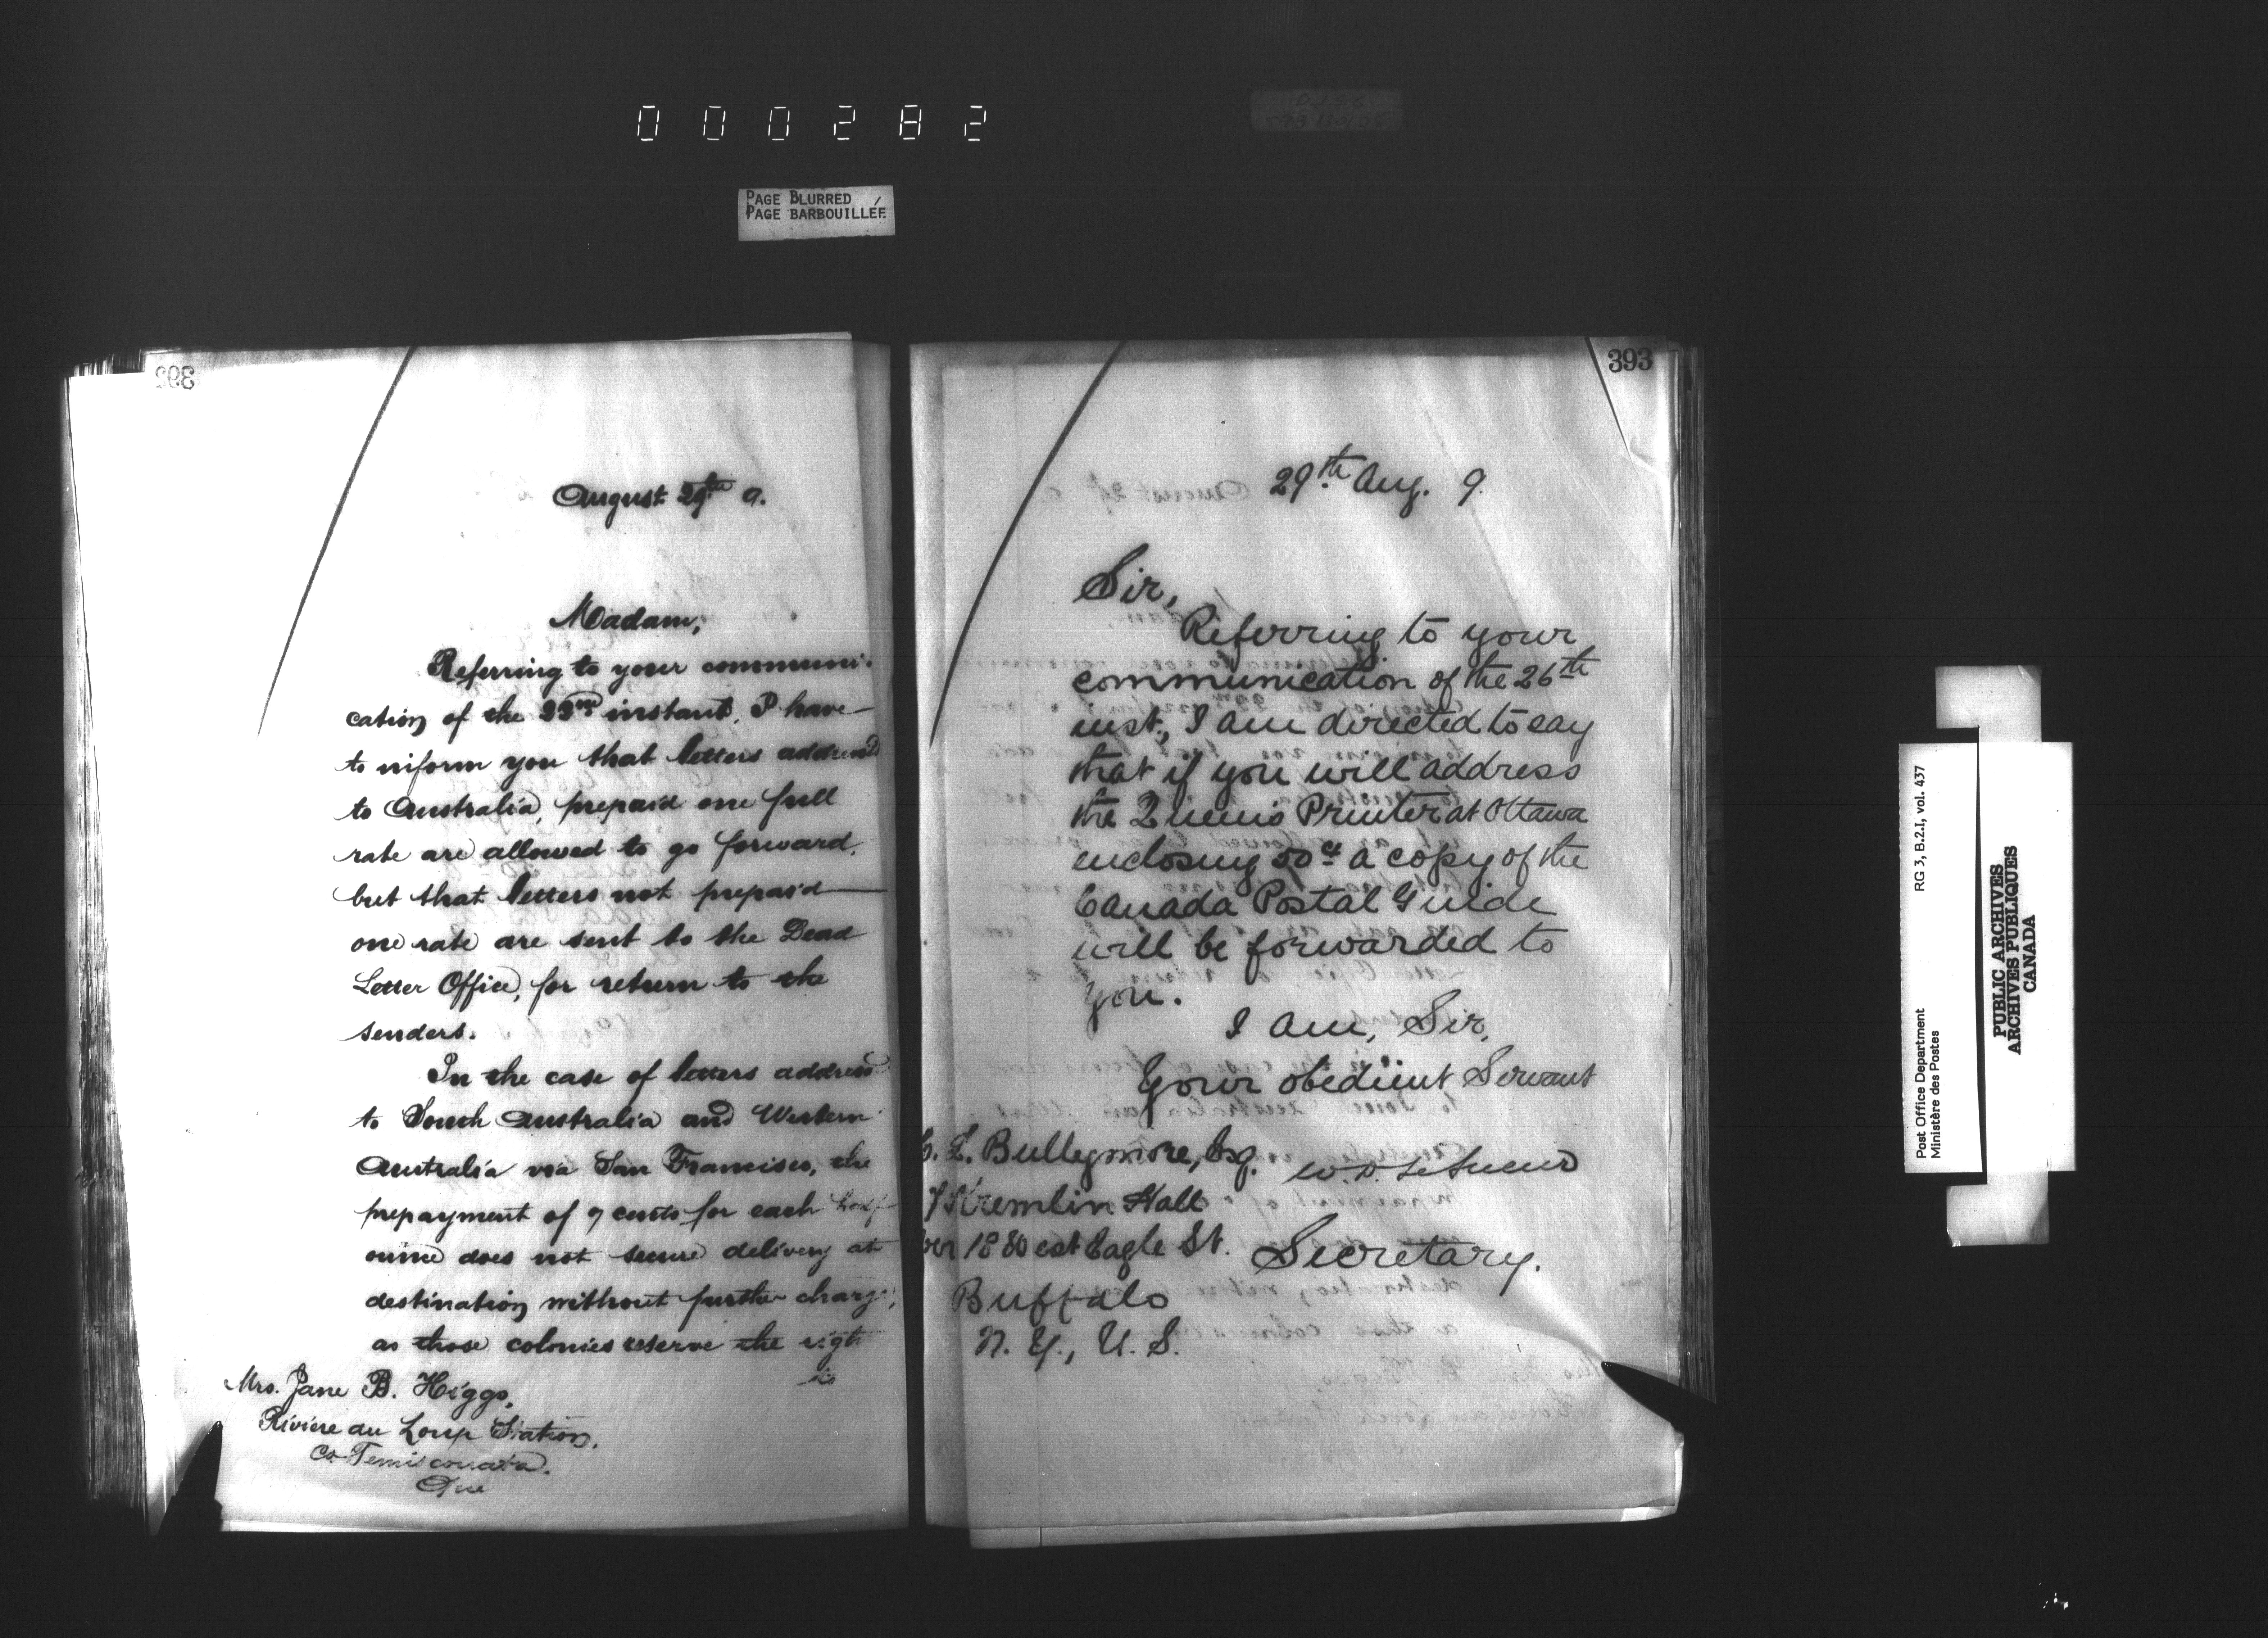 000282
PAGE BLURRED
PAGE BARBOUILLÉE
August 29th 9.
Madam,
Referring to your communi-
cation of the 23rd instant, I have
to inform you that letters addressed
to Australia, prepaid one full
rate are allowed to go forward,
but that letters not prepaid
one rate are sent to the Dead
Letter Office, for return to the
senders.
In the case of letters address
to South Australia and Western
Australia via San Francisco, the
prepayment of 7 cents for each half
ounce does not secure delivery at
destination without further charge,
as those colonies reserve the right
to
Mrs. Jane B. Higgs,
Rivière du Loup Station,
Co Temiscouata.
Que
393
29th Aug. 9.
Sir,
Referring to your
communication of the 26th
inst., I am directed to say
that if you will address
the Queen's Printer at Ottawa
enclosing 50 cts a copy of the
Canada Postal Guide
will be forwarded to
you.
I am, Sir,
Your obedient Servant
W. D. LeSueur
Secretary.
L. Bullymore, Esq.
Kremlin Hall
Eagle St.
Buffalo
N. Y., U. S.
Post Office Department RG 3, B.2.I, vol. 437
Ministère des Postes
PUBLIC ARCHIVES
ARCHIVES PUBLIQUES
CANADA